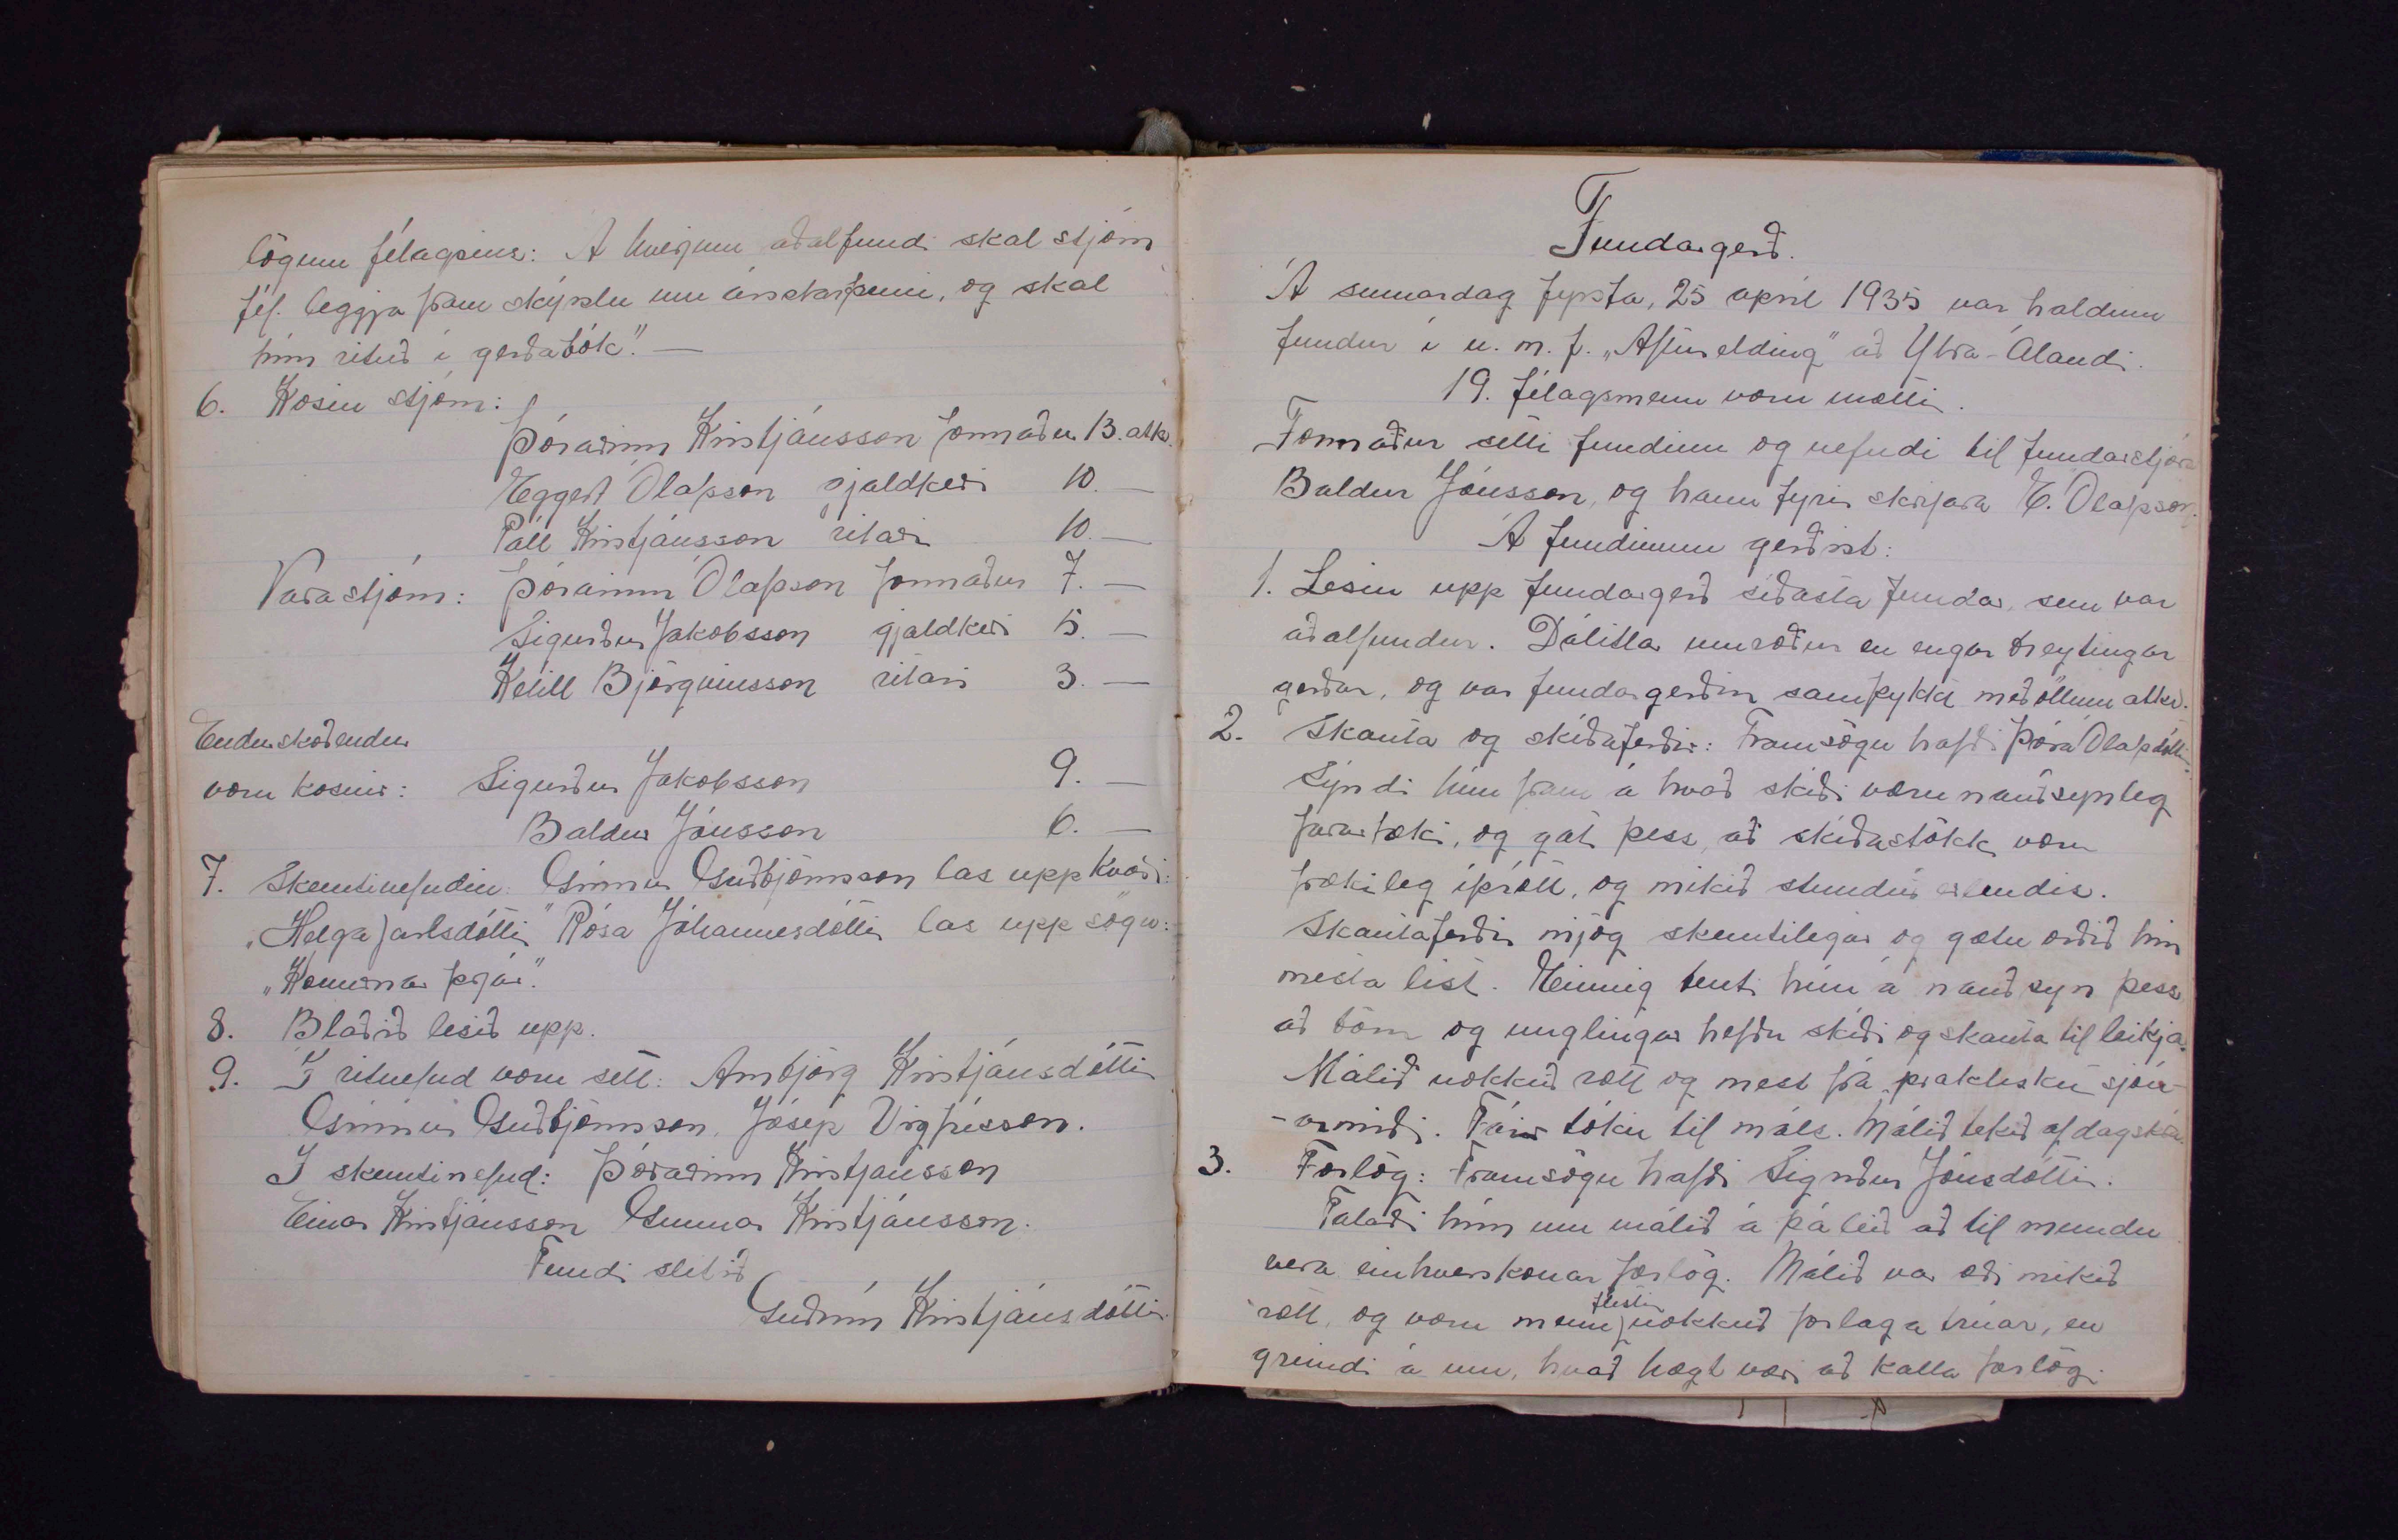 lögum félagsins: Á hverjum aðalfundi skal stjórn
fél. leggja fram skýrslu um ársstarfsemi, og skal
hún rituð í gerðabók". —
6. Kosin stjórn:
Þórarinn Kristjánsson formaður 13. atk.
Eggert Ólafsson gjaldkeri 10. —
Páll Kristjánsson ritari 10. —
Varastjórn: Þórarinn Ólafsson formaður 7. —
Sigurður Jakobsson gjaldkeri 5. —
Ketill Björgvinsson ritari 3. —
Endurskoðendur
voru kosnir: Sigurður Jakobsson 9. —
Baldur Jónsson 6. —
7. Skemtinefndin: Grímur Guðbjörnsson las upp kvæði:
„Helga jarlsdóttir" Rósa Jóhannesdóttir las upp sögu:
„Konurnar þrjár".
8. Blaðið lesið upp.
9. Í ritnefnd voru sett: Arnbjörg Kristjánsdóttir
Grímur Guðbjörnsson, Jósep Vigfússon.
Í skemtinefnd: Þórarinn Kristjánsson
Einar Kristjánsson Gunnar Kristjánsson.
Fundi slitið
Guðrún Kristjánsdóttir
Fundargerð.
Á sumardag fyrsta, 25 apríl 1935 var haldinn
fundur í u. m. f. „Afturelding" að Ytra-Álandi.
19. félagsmenn voru mættir.
Formaður setti fundinn og nefndi til fundarstjóra
Baldur Jónsson, og hann fyrir skrifara E. Ólafsson.
Á fundinum gerðist:
1. Lesin upp fundargerð síðasta fundar, sem var
aðalfundur. Dálitlar umræður en engar breytingar
gerðar, og var fundargerðin samþykkt með öllum atkv.
2. Skauta og skíðaferðir: Framsögu hafði Þóra Ólafsdóttir.
Sýndi hún fram á hvað skíði væru nauðsynleg
farartæki, og gat þess, að skíðastökk væru
frækileg íþrótt, og mikið stunduð erlendis.
Skautaferðir mjög skemtilegar og gætu orðið hin
mesta list. Einnig benti hún á nauðsyn þess
að börn og unglingar hefðu skíði og skauta til leikja.
Málið nokkuð rætt og mest frá praktisku sjónar-
-armiði. Fáir tóku til máls. Málið tekið af dagskrá.
3. Forlög: Framsögu hafði Sigríður Jónsdóttir.
Talaði hún um málið á þá leið að til mundu
vera einhverskonar forlög. Málið var æði mikið
rætt, og voru menn flestir nokkuð forlaga trúar, en
greindi á um, hvað hægt væri að kalla forlög.